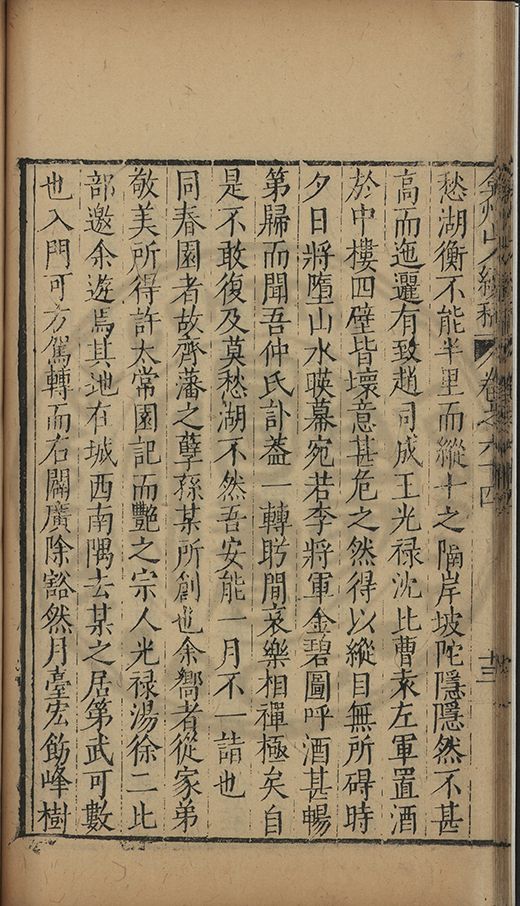 弇州山人續稿 卷之六十四 十三
愁湖衡不能半里而縱十之隔岸坡陀隱隱然不甚
高而迤邐有致趙司成王光祿沈比曹袁左軍置酒
於中樓四壁皆壞意甚危之然得以縱目無所碍時
夕日將墮山水暎幕宛若李將軍金碧圖呼酒甚暢
第歸而聞吾仲氏訃葢一轉盻間哀樂相禪極矣自
是不敢復及莫愁湖不然吾安能一月不一詣也
同春園者故齊藩之孽孫某所創也余嚮者從家弟
敬美所得許太常園記而艷之宗人光祿湯徐二比
部邀余遊焉其地在城西南隅去某之居第武可數
也入門可方駕轉而右闢廣除豁然月臺宏飭峰樹